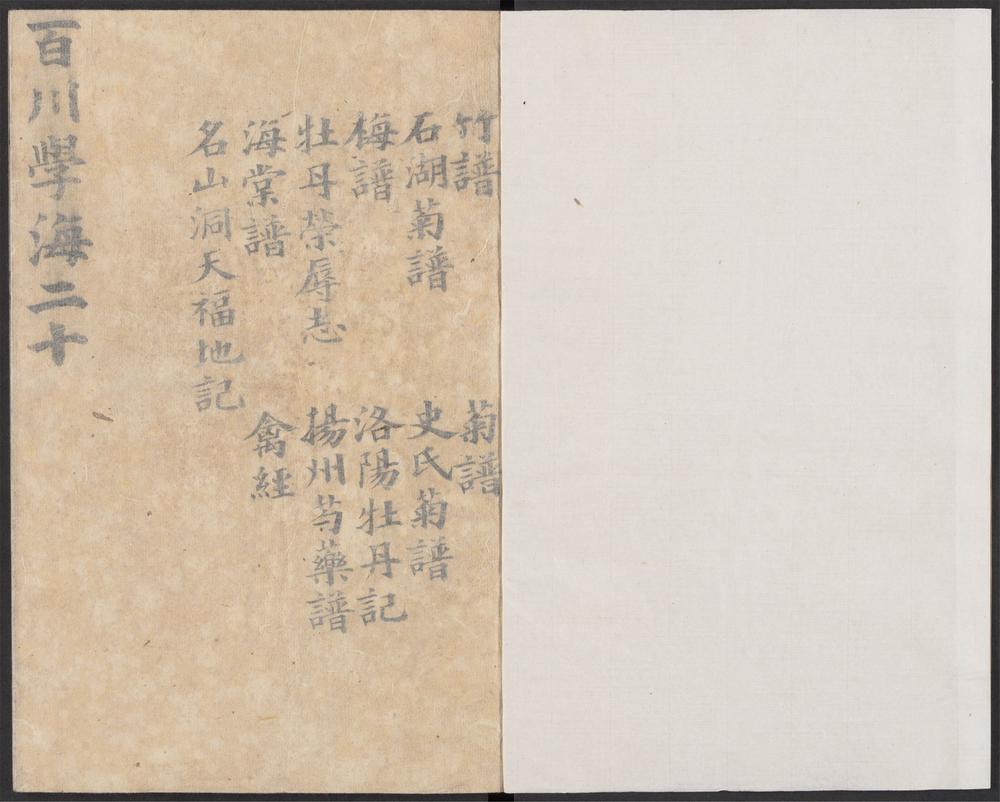 竹譜
菊譜
石湖菊譜
史氏菊譜
梅譜
洛陽牡丹記
牡丹榮辱志
揚州芍藥譜
海棠譜
禽經
名山洞天福地記
百川學海二十